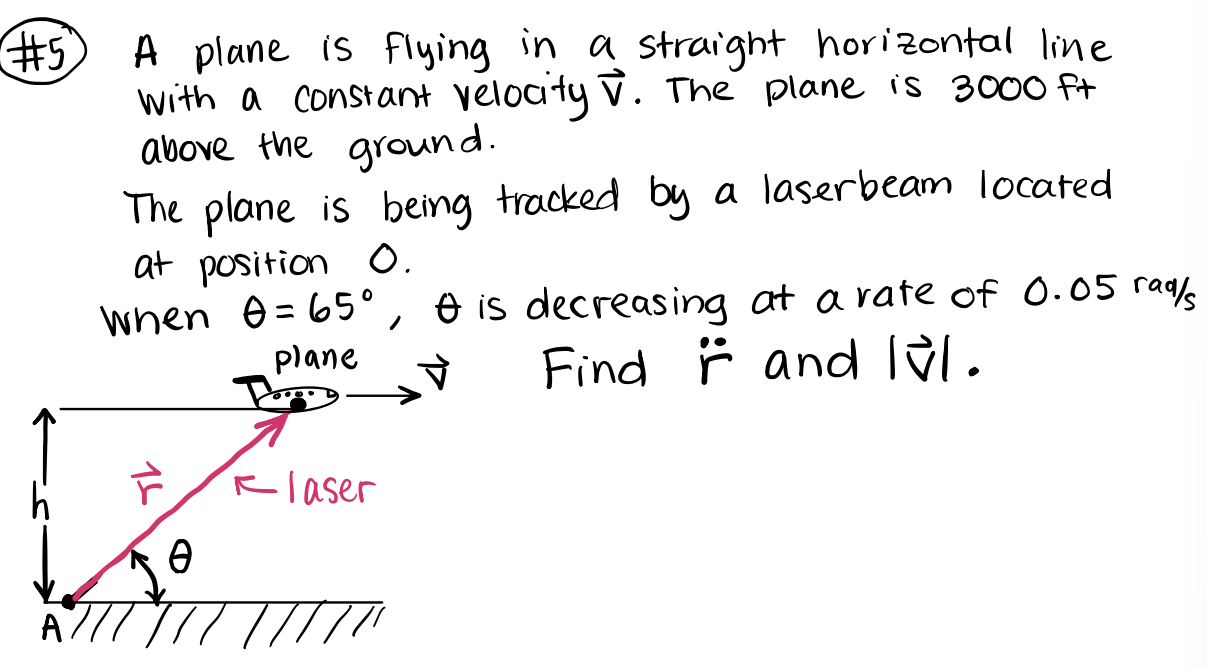 #5 A plane is flying in a straight horizontal line
with a constant velocity v⃗. The plane is 3000 ft
above the ground.
The plane is being tracked by a laserbeam located
at position O.
When θ = 65°, θ is decreasing at a rate of 0.05 rad/s
Find r̈ and |v⃗|.
plane
v⃗
h
r⃗
laser
θ
A